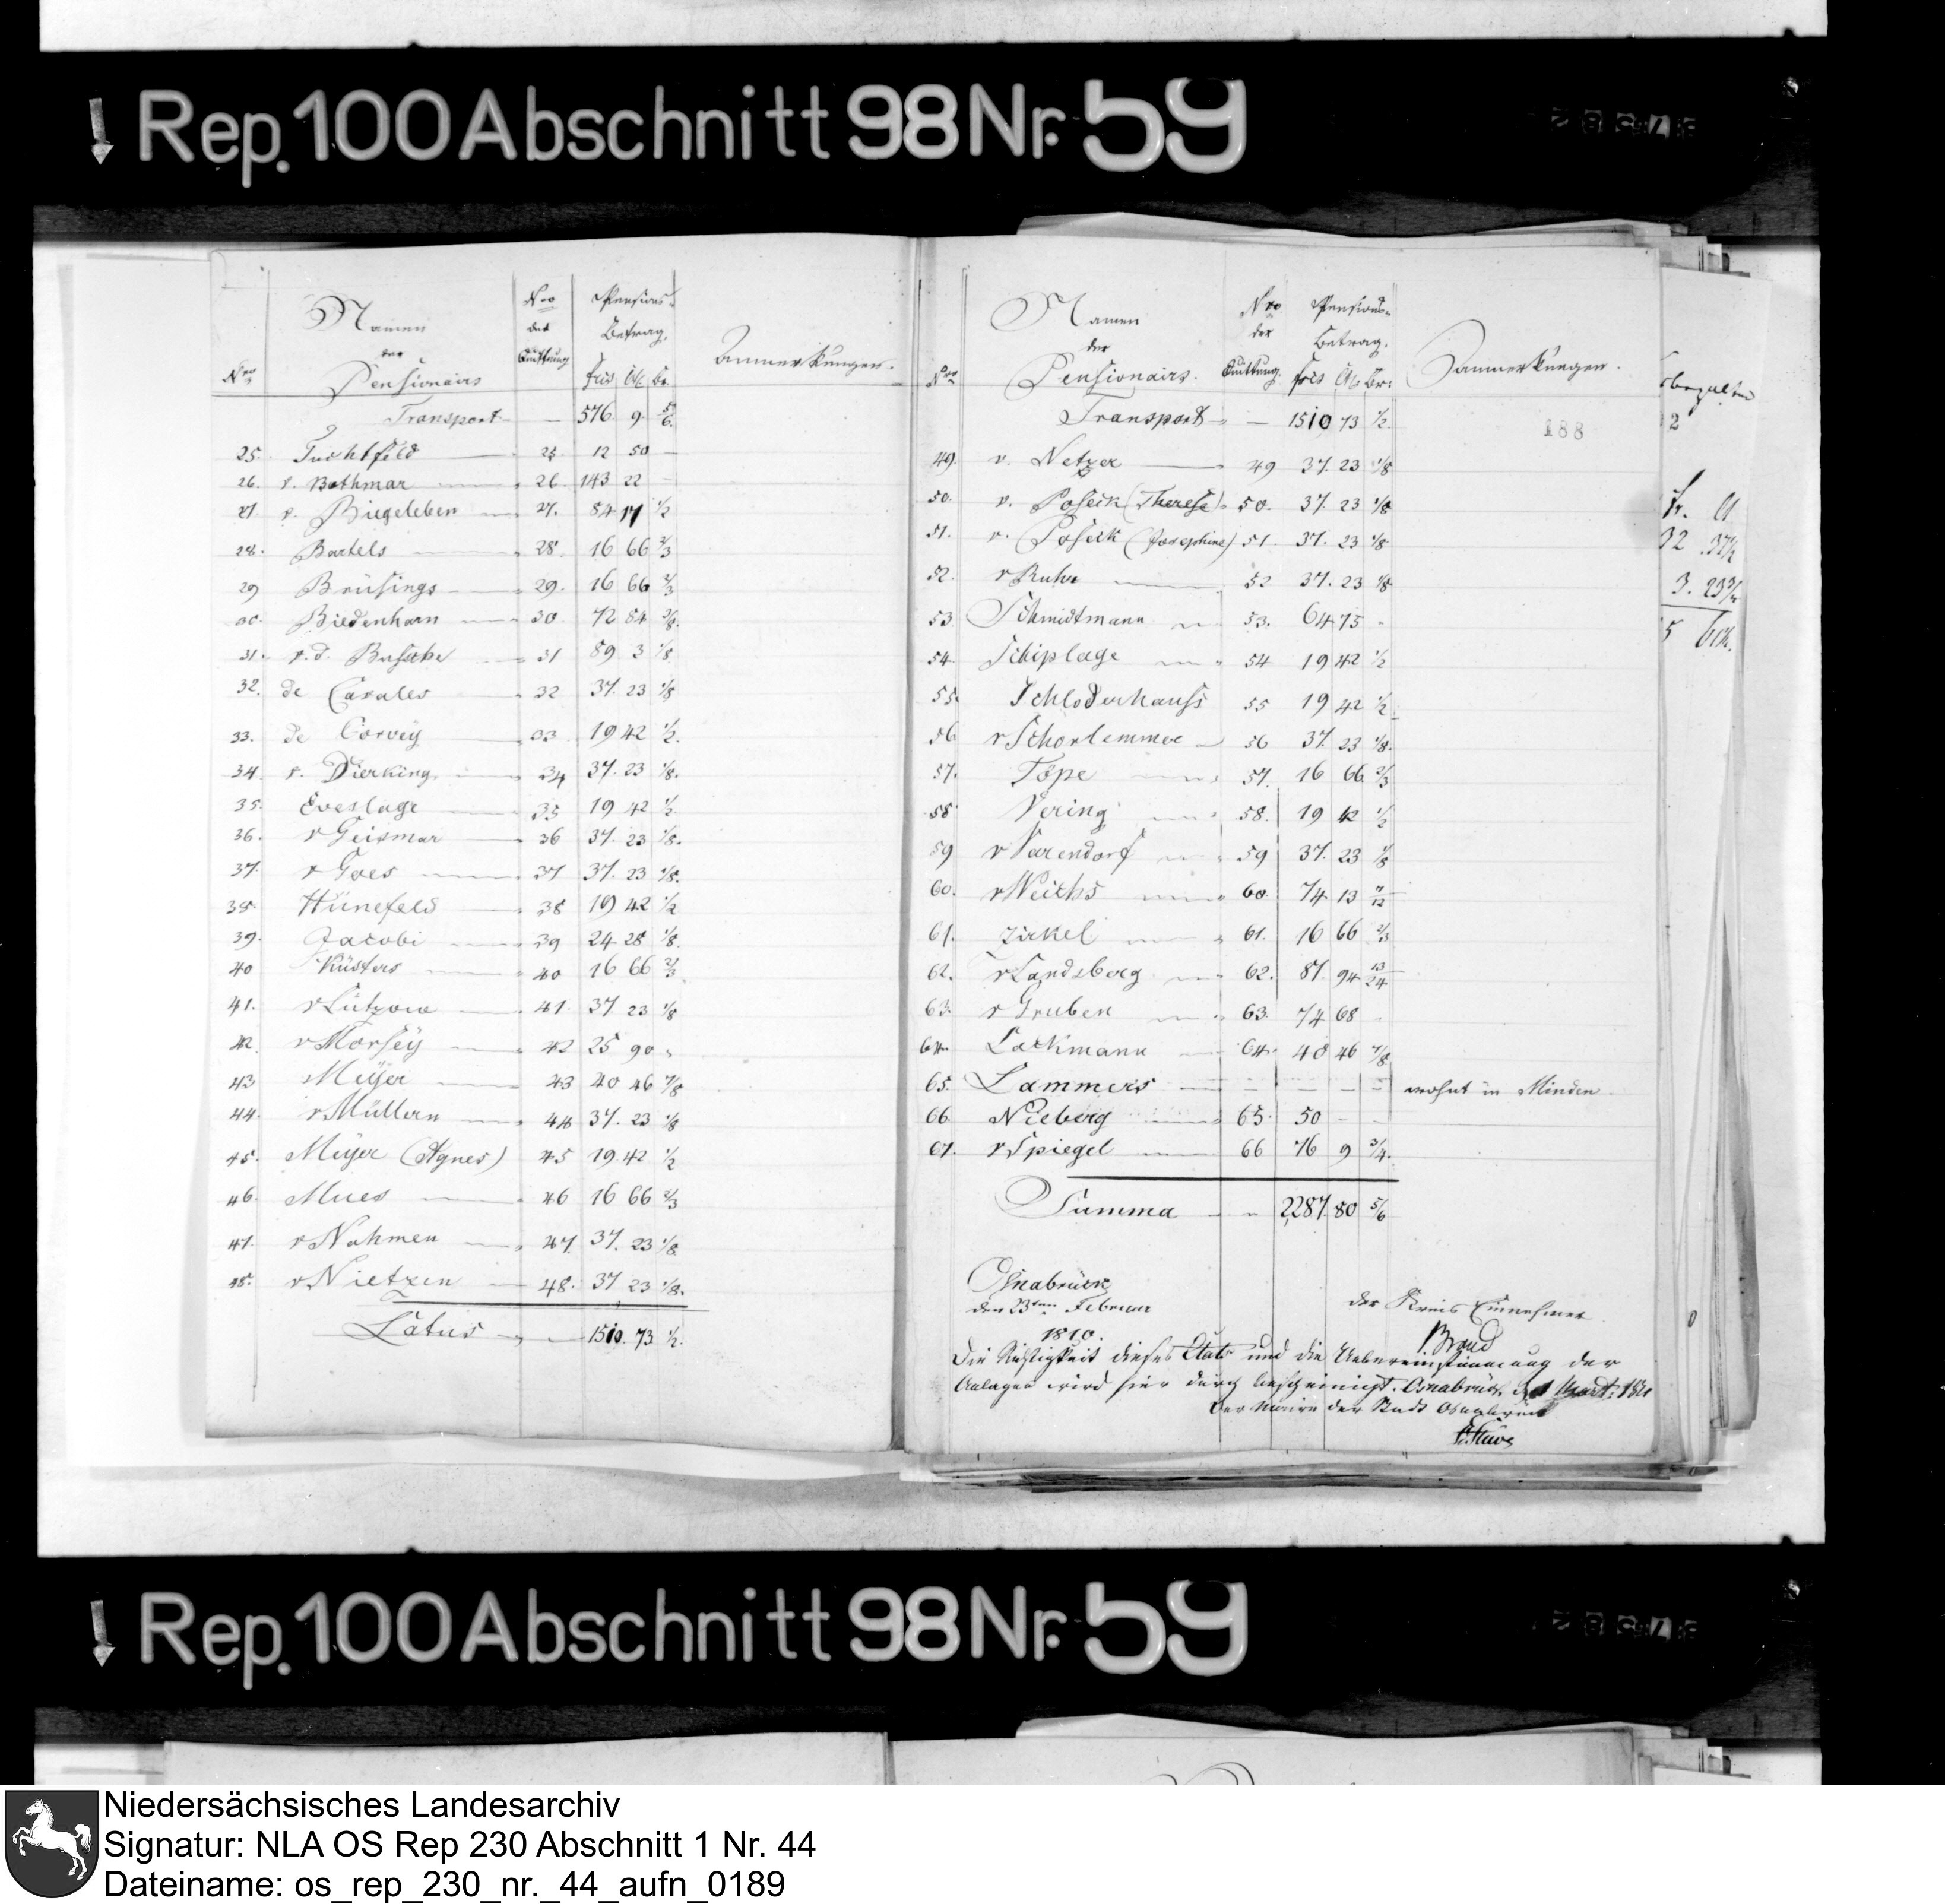 Rep. 100 Abschnitt 98 Nr. 59
Nro Namen der Pensionairs Nro der Quittung Pensions- Betrag. frcs Cts Br. Anmerkungen.
Transport — 576 9 5/6
25. Tuchtfeld — 25 12 50 —
26. v. Bothmar 26. 143 22 —
27. v. Biegeleben 27. 84 17 1/2
28. Bartels 28. 16 66 2/3
29 Brüsings 29. 16 66 2/3
30. Biedenharn 30 72 84 3/8
31. v. d. Bussche 31 89 3 1/8
32. de Casales 32 37. 23 1/8
33. de Corvey 33 19 42 1/2.
34. v. Dierking 34 37. 23 1/8.
35. Eveslage 35 19 42 1/2
36. v Geismar 36 37. 23 1/8.
37. v Goes 37 37. 23 1/8.
38 Hünefeld 38 19 42 1/2
39. Jacobi 39 24 28 1/8.
40 Küsters 40 16 66 2/3
41. v Lützow 41. 37 23 1/8
42. v Morsey 42 25 90
43 Meyer 43 40 46 7/8
44. v Müllern 44 37. 23 1/8
45. Meyer (Agnes) 45 19 42 1/2
46. Mues 46 16 66 2/3
47. v Nahmen 47. 37. 23 1/8
48. v Nietzen 48. 37 23 1/8.
Latus — 1510. 73 1/2.
Nro Namen der Pensionairs. Nro der Quittung. Pensions- Betrag. frcs Cts Br: Anmerkungen.
188
Transport — 1510 73 1/2
49. v. Netzer 49 37. 23 1/8
50. v. Poseck (Therese) 50. 37. 23 1/8
51. v. Poseck (Josephine) 51. 37. 23 1/8
52. v Ruhr 52 37. 23 1/8
53 Schmidtmann 53. 64 75 -
54 Schiplage 54 19 42 1/2
55. Schloderhauss 55 19 42 1/2
56 v Schorlemmer 56 37. 23 1/8.
57. Töpe 57. 16 66 2/3
58 Vering 58. 19 42 1/2
59 v Varendorf 59 37. 23 1/8
60. v Weichs 60. 74 13 7/12
61. Zirkel 61. 16 66 2/3
62. v Landsberg 62. 87. 94 13/24
63. v Gruben 63. 74 68 -
64. Lackmann 64. 40 46 7/8
65. Lammers — — — — wohnt in Minden
66 Nieberg 65. 50 - -
67. v Spiegel 66 76 9 3/4.
Summa 2287. 80 5/6
Osnabrück
den 23ten Februar
1810.
der Kreis Einnehmer
Brand
Die Richtigkeit dieses Etats und die Uebereinstimmung der
Anlagen wird hier durch bescheinigt. Osnabrück
Der Maire der Stadt Osnabrück
Stüve
Rep. 100 Abschnitt 98 Nr. 59
Niedersächsisches Landesarchiv
Signatur: NLA OS Rep 230 Abschnitt 1 Nr. 44
Dateiname: os_rep_230_nr._44_aufn_0189